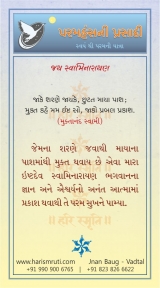 પરમહંસની પ્રસાદી
જય સ્વામિનારાયણ
જાકે શરણે જાયકે, છુટત માયા પાશ;
મુક્ત કહે મમ ઇષ્ટ સો, જાકો પ્રબળ પ્રકાશ.
(મુક્તાનંદ સ્વામી)
જેમના શરણે જવાથી માયાના
પાશમાંથી મુક્ત થવાય છે એવા મારા
ઇષ્ટદેવ સ્વામિનારાયણ ભગવાનના
જ્ઞાન અને ઐશ્વર્યનો અનંત આત્મામાં
પ્રકાશ થવાથી તે પરમ સુખને પામ્યા.
|| હરિ સ્મૃતિ ||
www.harismruti.com
Jnan Baug - Vadtal
+91 990 900 6765
+91 823 826 6622